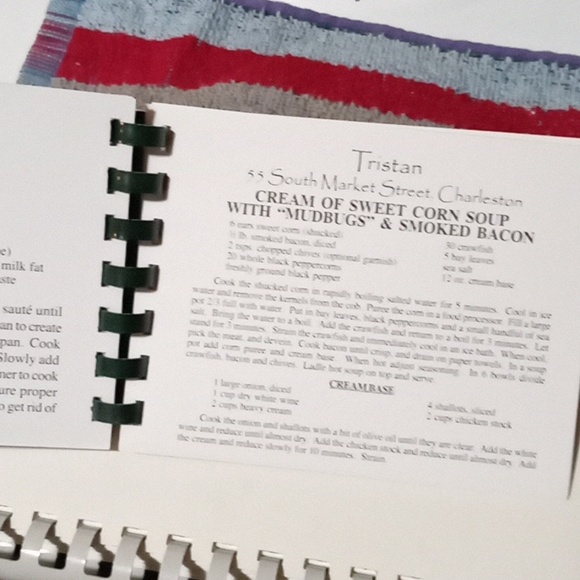 e)
milk fat
ste
sauté until
an to create
pan. Cook
Slowly add
ner to cook
ure proper
o get rid of
Tristan
55 South Market Street, Charleston
CREAM OF SWEET CORN SOUP
WITH “MUDBUGS” & SMOKED BACON
6 ears sweet corn (shucked)
½ lb. smoked bacon, diced
2 tsps. chopped chives (optional garnish)
20 whole black peppercorns
freshly ground black pepper
30 crawfish
5 bay leaves
sea salt
12 oz. cream base
Cook the shucked corn in rapidly boiling salted water for 5 minutes. Cool in ice
water and remove the kernels from the cob. Puree the corn in a food processor. Fill a large
pot 2/3 full with water. Put in bay leaves, black peppercorns and a small handful of sea
salt. Bring the water to a boil. Add the crawfish and return to a boil for 3 minutes. Let
stand for 3 minutes. Strain the crawfish and immediately cool in an ice bath. When cool,
pick the meat, and devein. Cook bacon until crisp, and drain on paper towels. In a soup
pot add corn puree and cream base. When hot adjust seasoning. In 6 bowls divide
crawfish, bacon and chives. Ladle hot soup on top and serve.
CREAM BASE
1 large onion, diced
1 cup dry white wine
2 cups heavy cream
4 shallots, sliced
2 cups chicken stock
Cook the onion and shallots with a bit of olive oil until they are clear. Add the white
wine and reduce until almost dry. Add the chicken stock and reduce until almost dry. Add
the cream and reduce slowly for 10 minutes. Strain.